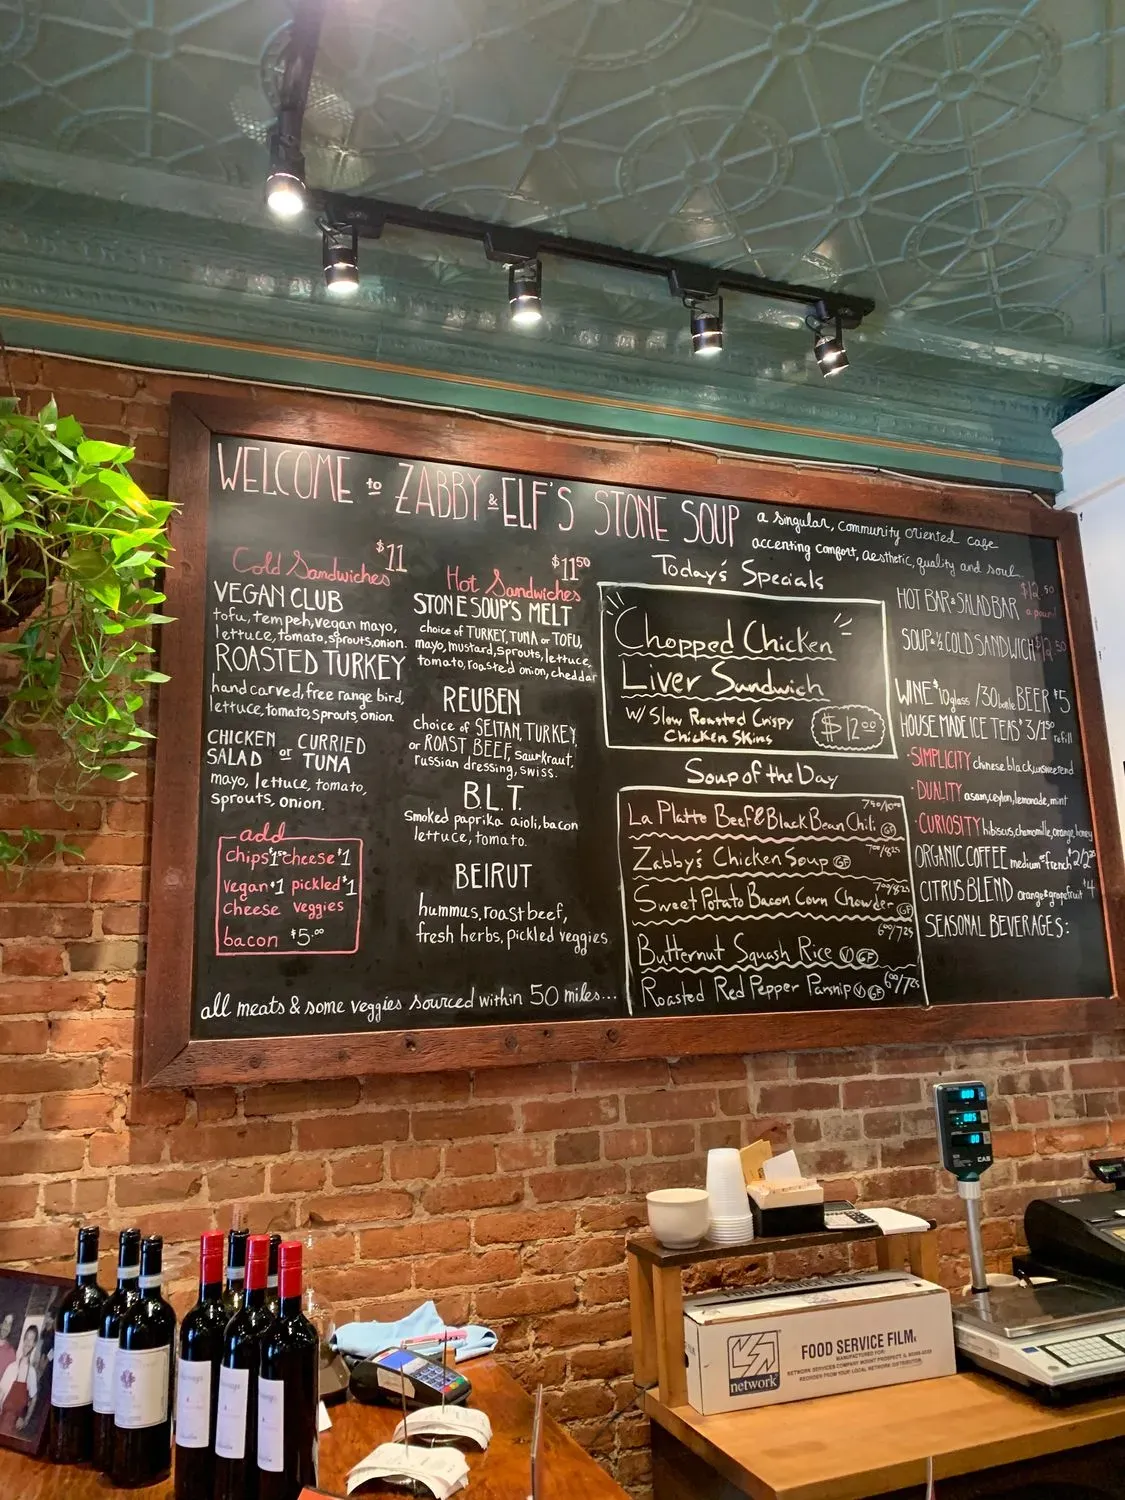 WELCOME to ZABBY & ELF'S STONE SOUP
a singular, community oriented cafe
accenting comfort, aesthetic, quality and soul
Cold Sandwiches $11
VEGAN CLUB
tofu, tempeh, vegan mayo,
lettuce, tomato, sprouts, onion.
ROASTED TURKEY
hand carved, free range bird,
lettuce, tomato, sprouts, onion
CHICKEN or CURRIED
SALAD TUNA
mayo, lettuce, tomato,
sprouts, onion.
add
chips $1.50 cheese $1
vegan $1 pickled $1
cheese veggies
bacon $5.00
Hot Sandwiches $11.50
STONE SOUP'S MELT
choice of TURKEY, TUNA or TOFU,
mayo, mustard, sprouts, lettuce,
tomato, roasted onion, cheddar
REUBEN
choice of SEITAN, TURKEY,
or ROAST BEEF, saurkraut,
russian dressing, swiss.
B.L.T.
smoked paprika aioli, bacon
lettuce, tomato.
BEIRUT
hummus, roast beef,
fresh herbs, pickled veggies
all meats & some veggies sourced within 50 miles...
Today's Specials
Chopped Chicken
Liver Sandwich
w/ Slow Roasted Crispy
Chicken Skins
$12.00
Soup of the Day
La Platte Beef & Black Bean Chili GF
Zabby's Chicken Soup GF 7.00/8.25
Sweet Potato Bacon Corn Chowder GF 7.00/8.25
Butternut Squash Rice V GF 6.00/7.25
Roasted Red Pepper Parsnip V GF 6.00/7.25
HOT BAR & SALAD BAR $12.50 a pound
SOUP & ½ COLD SANDWICH $12.50
WINE $10 glass /30 bottle BEER $5
HOUSEMADE ICE TEAS $3/1.50 refill
·SIMPLICITY chinese black, unsweetend
·DUALITY asam, ceylon, lemonade, mint
·CURIOSITY hibiscus, chamomille, orange, honey
ORGANIC COFFEE medium or french $2/2.25
CITRUS BLEND orange & grapefruit $4
SEASONAL BEVERAGES:
FOOD SERVICE FILM
MANUFACTURED FOR:
NETWORK SERVICES COMPANY MOUNT PROSPECT, IL
network
CAS